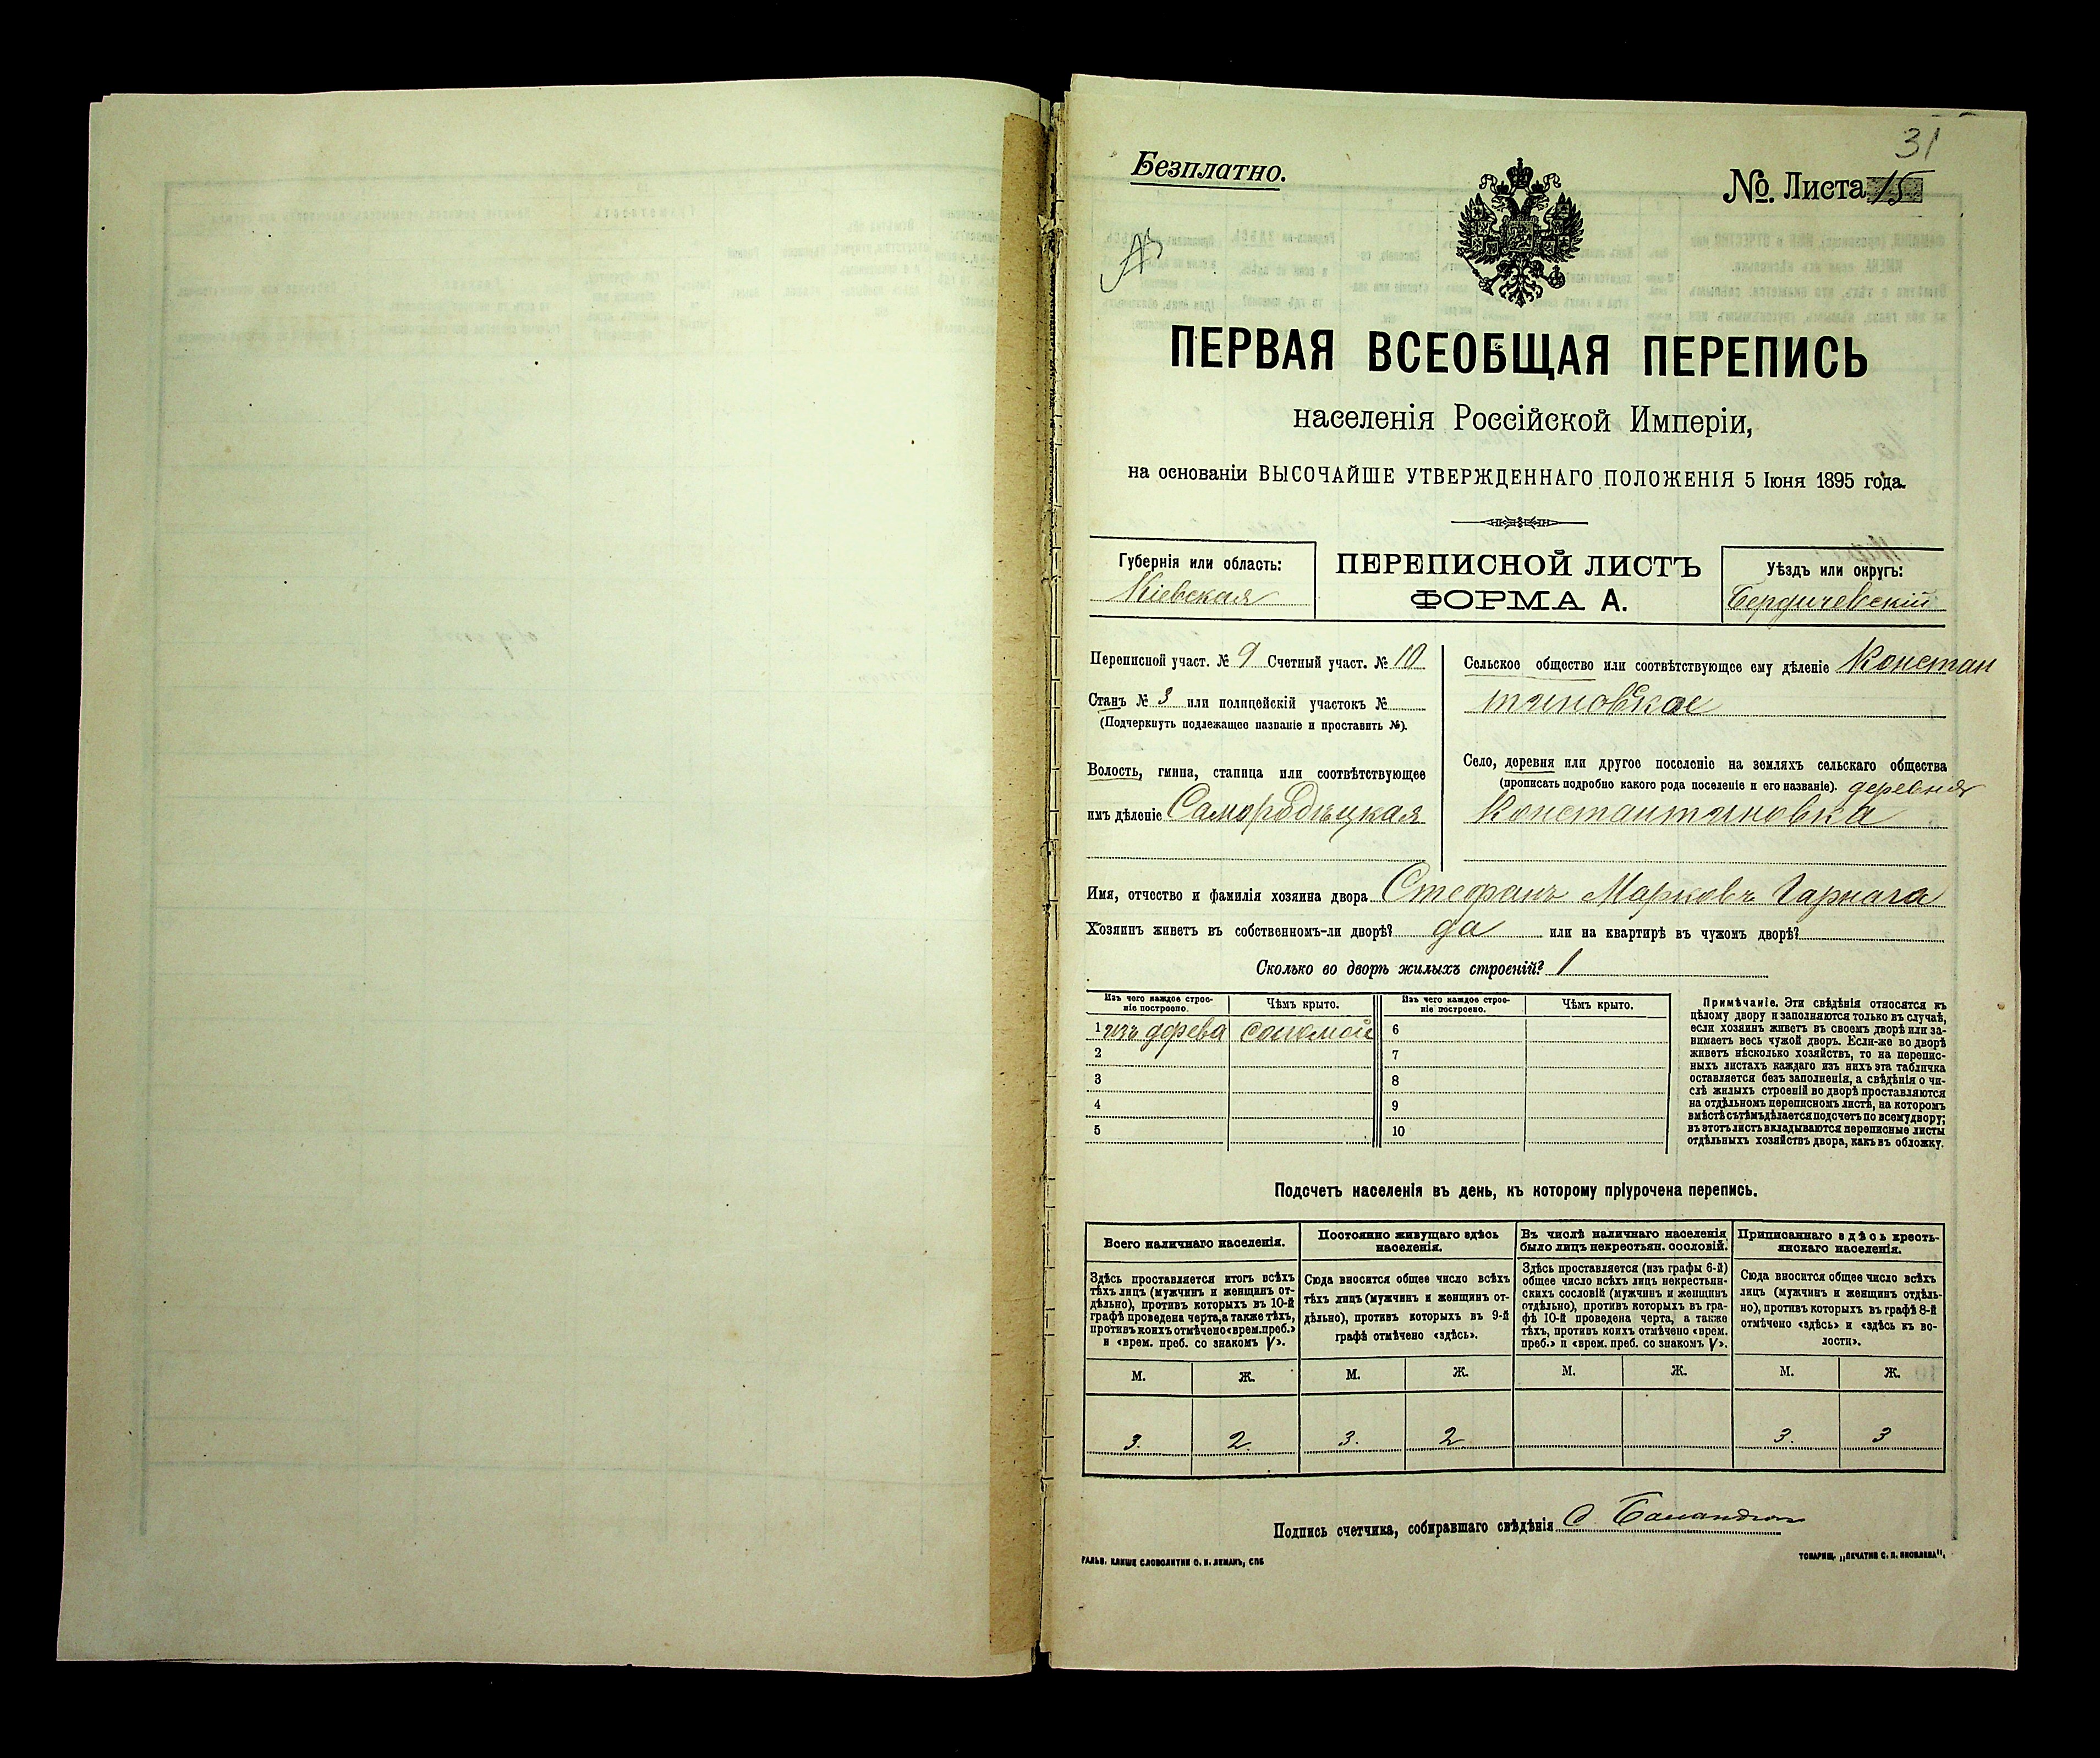 31
Безплатно.
№. Листа 15
ПЕРВАЯ ВСЕОБЩАЯ ПЕРЕПИСЬ
населенія Россійской Имперіи,
на основаніи ВЫСОЧАЙШЕ УТВЕРЖДЕННАГО ПОЛОЖЕНІЯ 5 Іюня 1895 года.
Губернія или область:
Кіевская
ПЕРЕПИСНОЙ ЛИСТЪ
ФОРМА А.
Уѣздъ или округъ:
Бердичевскій
Переписной участ. № 9 Счетный участ. № 10
Станъ № 3 или полицейскій участокъ №
(Подчеркнуть подлежащее названіе и проставить №).
Волость, гмина, станица или соотвѣтствующее
имъ дѣленіе Самородѣцкая
Сельское общество или соотвѣтствующее ему дѣленіе Констан
тиновское
Село, деревня или другое поселеніе на земляхъ сельскаго общества
(прописать подробно какого рода поселеніе и его названіе). деревня
Константиновка
Имя, отчество и фамилія хозяина двора Стефанъ Марковъ Гарнага
Хозяинъ живетъ въ собственномъ-ли дворѣ? да или на квартирѣ въ чужомъ дворѣ?
Сколько во дворѣ жилыхъ строеній? 1
Изъ чего каждое строе-
ніе построено.
Чѣмъ крыто.
Изъ чего каждое строе-
ніе построено.
Чѣмъ крыто.
1 изъ дерева соломой 6
2 7
3 8
4 9
5 10
Примѣчаніе. Эти свѣдѣнія относятся къ
цѣлому двору и заполняются только въ случаѣ,
если хозяинъ живетъ въ своемъ дворѣ или за-
нимаетъ весь чужой дворъ. Если-же во дворѣ
живетъ нѣсколько хозяйствъ, то на перепис-
ныхъ листахъ каждаго изъ нихъ эта табличка
оставляется безъ заполненія, а свѣдѣнія о чи-
слѣ жилыхъ строеній во дворѣ проставляются
на отдѣльномъ переписномъ листѣ, на которомъ
вмѣстѣ съ тѣмъ дѣлается подсчетъ по всему двору;
въ этотъ листъ вкладываются переписные листы
отдѣльныхъ хозяйствъ двора, какъ въ обложку.
Подсчетъ населенія въ день, къ которому пріурочена перепись.
Всего наличнаго населенія.
Здѣсь проставляется итогъ всѣхъ
тѣхъ лицъ (мужчинъ и женщинъ от-
дѣльно), противъ которыхъ въ 10-й
графѣ проведена черта, а также тѣхъ,
противъ коихъ отмѣчено «врем. преб.»
и «врем. преб. со знакомъ V».
Постоянно живущаго здѣсь
населенія.
Сюда вносится общее число всѣхъ
тѣхъ лицъ (мужчинъ и женщинъ от-
дѣльно), противъ которыхъ въ 9-й
графѣ отмѣчено «здѣсь».
Въ числѣ наличнаго населенія
было лицъ некрестьян. сословій.
Здѣсь проставляется (изъ графы 6-й)
общее число всѣхъ лицъ некрестьян-
скихъ сословій (мужчинъ и женщинъ
отдѣльно), противъ которыхъ въ гра-
фѣ 10-й проведена черта, а также
тѣхъ, противъ коихъ отмѣчено «врем.
преб.» и «врем. преб. со знакомъ V».
Приписаннаго здѣсь кресть-
янскаго населенія.
Сюда вносится общее число всѣхъ
лицъ (мужчинъ и женщинъ отдѣль-
но), противъ которыхъ въ графѣ 8-й
отмѣчено «здѣсь» и «здѣсь къ во-
лости».
М. Ж. М. Ж. М. Ж. М. Ж.
3. 2. 3. 2 3. 3
Подпись счетчика, собиравшаго свѣдѣнія
ГАЛЬВ. КЛИШЕ СЛОВОЛИТНИ О. И. ЛЕМАНЪ, СПБ
ТОВАРИЩ. „ПЕЧАТНЯ С. П. ЯКОВЛЕВА“.